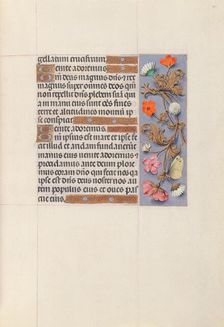 gellarum crucifixum.
Venite adoremus
Qm deus magnus dns et rex
magnus super omnes deos qm
non repellet dns plebem suam qui
a in manu eius sunt oēs fines
terre et altitudines montium ip
se conspicit
Venite adoremus.
Qm ipsius est mare et ipse fe
cit illud et aridam fundaverunt
manus eius venite adoremus et
procidamus ante deum ploremus
coram dno qui fecit nos quia
ipse est dns deus noster nos au
tem populus eius et oves pas
cue eius